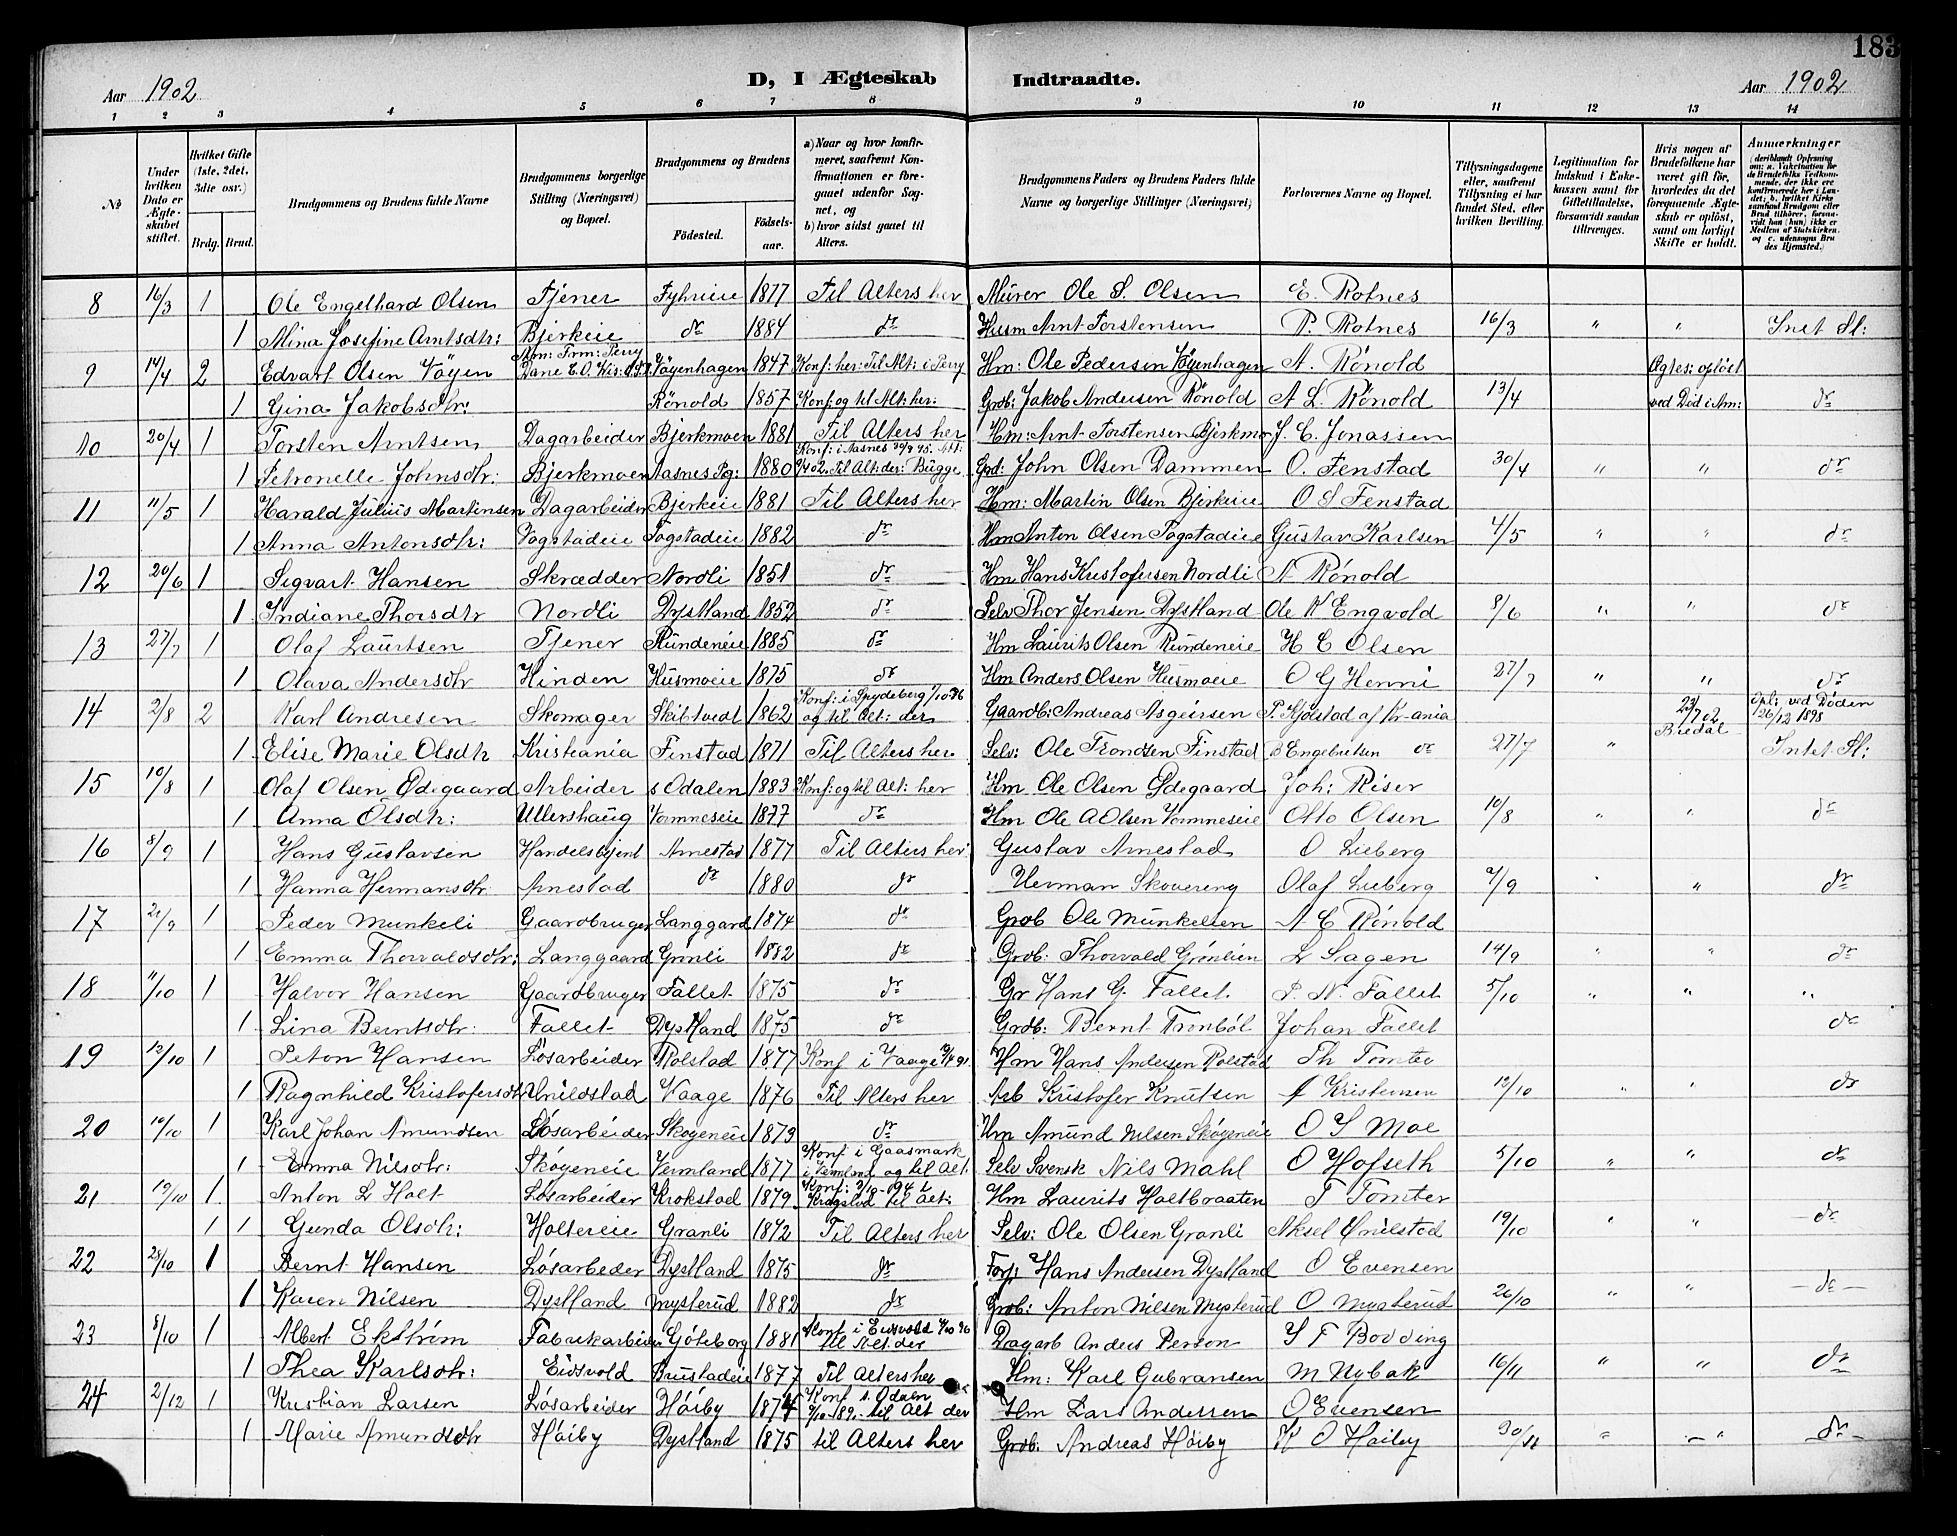 183
Aar 1902 D, I Ægteskab Indtraadte. Aar 1902
1 2 3 4 5 6 7 8 9 10 11 12 13 14
No
Under hvilken Dato er Ægteskabet stiftet.
Hvilket Gifte (1ste, 2det, 3die osv.)
Brdg. Brud.
Brudgommens og Brudens fulde Navne
Brudgommens borgerlige Stilling (Næringsvei) og Bopæl.
Brudgommens og Brudens
Fødested. Fødselsaar.
a) Naar og hvor konfirmeret, saafremt Konfirmationen er foregaaet udenfor Sognet, og
b) hvor sidst gaaet til Alters.
Brudgommens Faders og Brudens Faders fulde Navne og borgerlige Stillinger (Næringsvei)
Forlovernes Navne og Bopæl.
Tillysningsdagene eller, saafremt Tillysning ei har fundet Sted, efter hvilken Bevilling.
Legitimation for Indskud i Enkekassen samt for Giftetilladelse, forsaavidt saadan tiltrænges.
Hvis nogen af Brudefolkene har været gift før, hvorledes da det foregaaende Ægteskab er opløst, samt om lovligt Skifte er holdt.
Anmærkninger
8 16/3 1 Ole Engelhard Olsen Tjener Fyhrieie 1877 Til Alters her Murer Ole S. Olsen E. Rotnes
1 Mina Josefine Arntsdtr: Bjerkeie do 1884 do Husm Arnt Torstensen P. Rotnes 16/3 " " Intet Sl:
9 14/4 2 Edvart Olsen Vøyen Vøyenhagen 1847 Konf: her: Til Alt: i Perry Hm: Ole Pedersen Vøyenhagen A. Rønold Ægtes: opløst
1 Gina Jakobsdtr: Rønold 1857 Konf: og til Alt: her: Grdb: Jakob Andersen Rønold A L. Rønold 13/4 ved Død i Am: do
10 20/4 1 Torsten Arntsen Dagarbeider Bjerkmoen 1881 Til Alters her Hm: Arnt Torstensen Bjerkmo J. C. Jonassen
1 Petronelle Johnsdtr: Bjerkmoen Aasnes Pg: 1880 Til Alt: der: Bugge Grd: John Olsen Dammen O. Fenstad 30/4 " " do
11 11/5 1 Harald Julius Martinsen Dagarbeider Bjerkeie 1881 Til Alters her Hm: Martin Olsen Bjerkeie O S Fenstad
1 Anna Antonsdtr: Fogstadeie Fogstadeie 1882 do Hm Anton Olsen Fogstadeie Gustav Karlsen 4/5 " " do
12 20/6 1 Sigvart Hansen Skrædder Nordli 1851 do Hm Hans Kristofersen Nordli A Rønold
1 Indiane Thorsdtr Nordli Dystland 1852 do Selv Thor Jensen Dystland Ole K Engvold 8/6 " " do
13 27/7 1 Olaf Lauritsen Tjener Rundeneie 1885 do Hm Laurits Olsen Rundeneie H C Olsen
1 Olava Andersdtr Hinden Husmoeie 1875 do Hm Anders Olsen Husmoeie O G Henni 27/7 " " do
14 2/8 2 Karl Andresen Skomager Skibtvedt 1862 Konf: i Spydeberg 1/10 76 og til Alt: der Gaardb: Andreas Asgeirsen P. Kjølstad af Kr-ania 23/7 02 Bredal Opl: ved Døden 26/12 1898
1 Elise Marie Olsdtr Kristiania Finstad 1871 Til Alters her Selv: Ole Trondsen Finstad B Engebretsen do 27/7 " Intet Sl:
15 10/8 1 Olaf Olsen Ødegaard Arbeider s Odalen 1883 Konf: og til Alt: her Hm Ole Olsen Ødegaard Joh: Riser
1 Anna Olsdtr: Ullershaug Vormneseie 1877 do Hm Ole A Olsen Vormneseie Otto Olsen 10/8 " " do
16 8/9 1 Hans Gustavsen Handelsbetjent Arnestad 1877 Til Alters her Gustav Arnestad O Lieberg
1 Hanna Hermansdtr Arnestad do 1880 do Herman Skovereng Olaf Lieberg 2/9 " " do
17 21/9 1 Peder Munkeli Gaardbruger Langgard 1874 do Grdb Ole Munkelien A C Rønold
1 Emma Thorvaldsdtr: Langgaard Grønli 1882 do Grdb: Thorvald Grønlien L Sagen 14/9 " " do
18 11/10 1 Halvor Hansen Gaardbruger Fallet 1875 do Gr Hans G. Fallet P. N. Fallet 5/10 " " "
1 Lina Berntsdtr: Fallet Dystland 1875 do Grdb: Bernt Tronbøl Johan Fallet do
19 12/10 1 Peton Hansen Løsarbeider Rolstad 1877 Konf i Vaage Hm Hans Andersen Rolstad Th Tomte
1 Ragnhild Kristofersdtr Unildstad Vaage 1876 Til Alters her Arb Kristofer Knutsen Kristensen 12/10 " " do
20 10/10 1 Karl Johan Amundsen Løsarbeider Skøgeneie 1873 do Hm Amund Nilsen Skøgeneie O S Moe
1 Emma Nilsdtr: Skøgeneie Vermland 1877 Konf i Gaasmark i Vermland og til Alt. Selv Svensk Nils Mahl O Hofseth 5/10 " " do
21 19/10 1 Anton L Holt Løsarbeider Krokstad 1879 Krogstad til Alt: Hm Laurits Holtbraaten T Tomter
1 1 Gunda Olsdtr: Holtereie Granli 1872 Til Alters her Selv: Ole Olsen Granli Aksel Unilstad 19/10 " " do
22 28/10 1 Bernt Hansen Løsarbeder Dystland 1875 do Forp Hans Andersen Dystland O Evensen
1 Karen Nilsen Dystland Mysterud 1882 do Grdb: Anton Nilsen Mysterud O Mysterud 26/10 " " do
23 8/10 1 Albert Ekstrøm Fabrikarbeider Göteborg 1881 Konf i Eidsvold 4/10 96 til Alt der Dagarb Anders Person S T Bodding
1 Thea Karlsdtr: Eidsvold Brustadeie 1877 Til Alters her Hm: Karl Gubransen M Nybak 16/11 " " do
24 2/12 1 Kristian Larsen Løsarbeider Høiby 1874 Konf s. Odalen til Alt der Hm Lars Andersen O Evensen
1 Marie Amundsdtr Høiby Dystland 1875 til Alters her Grdb: Andreas Høiby K O Høiby 30/11 " " do